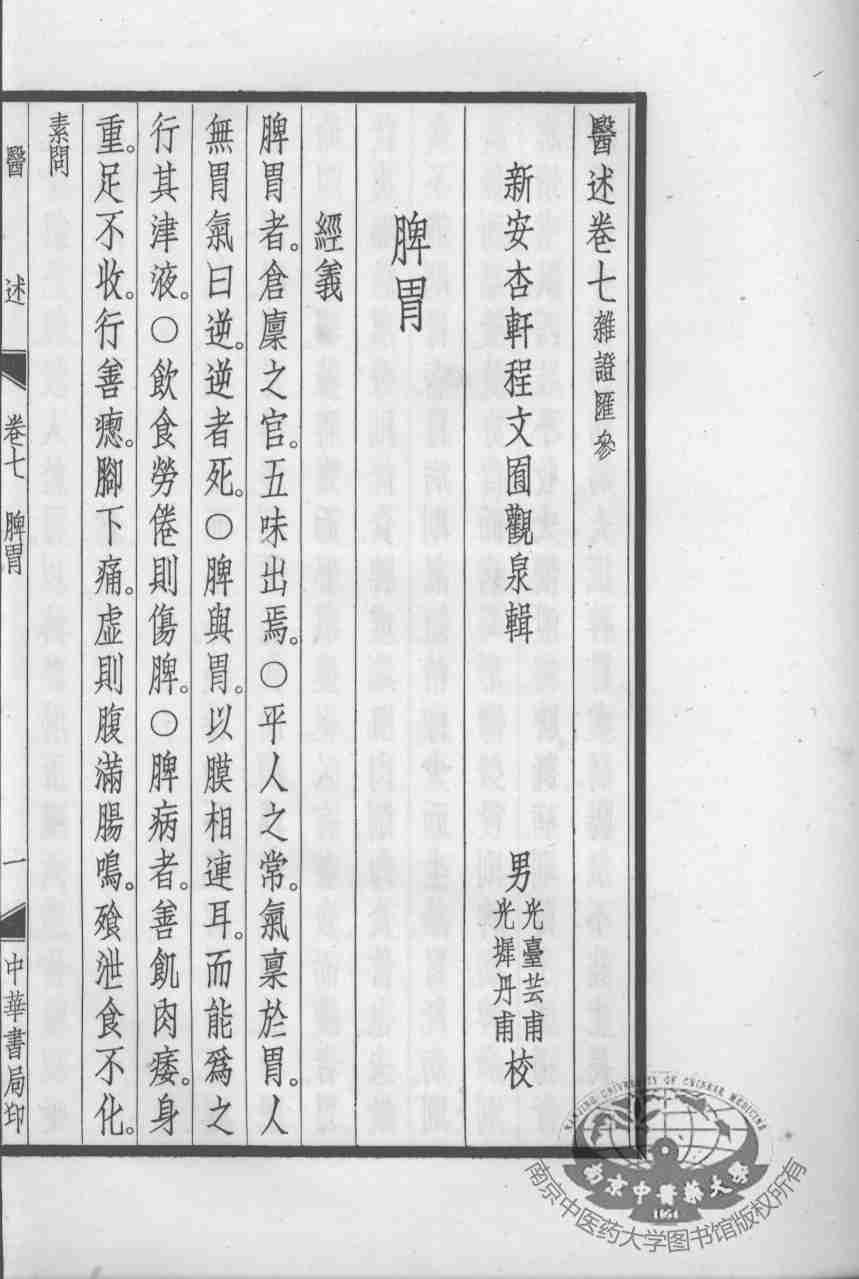 醫述卷七雜證匯參
新安杏軒程文囿觀泉輯 男光臺芸甫光墀丹甫校
脾胃
經義
脾胃者。倉廩之官。五味出焉。○平人之常。氣稟於胃。人
無胃氣曰逆。逆者死。○脾與胃。以膜相連耳。而能爲之
行其津液。○飲食勞倦則傷脾。○脾病者。善飢肉痿。身
重。足不收。行善瘛。腳下痛。虛則腹滿腸鳴。飱泄食不化。
素問
醫述 卷七 脾胃 一 中華書局印
NANJING UNIVERSITY OF CHINESE MEDICINE
南京中醫藥大學
1954
南京中医药大学图书馆版权所有